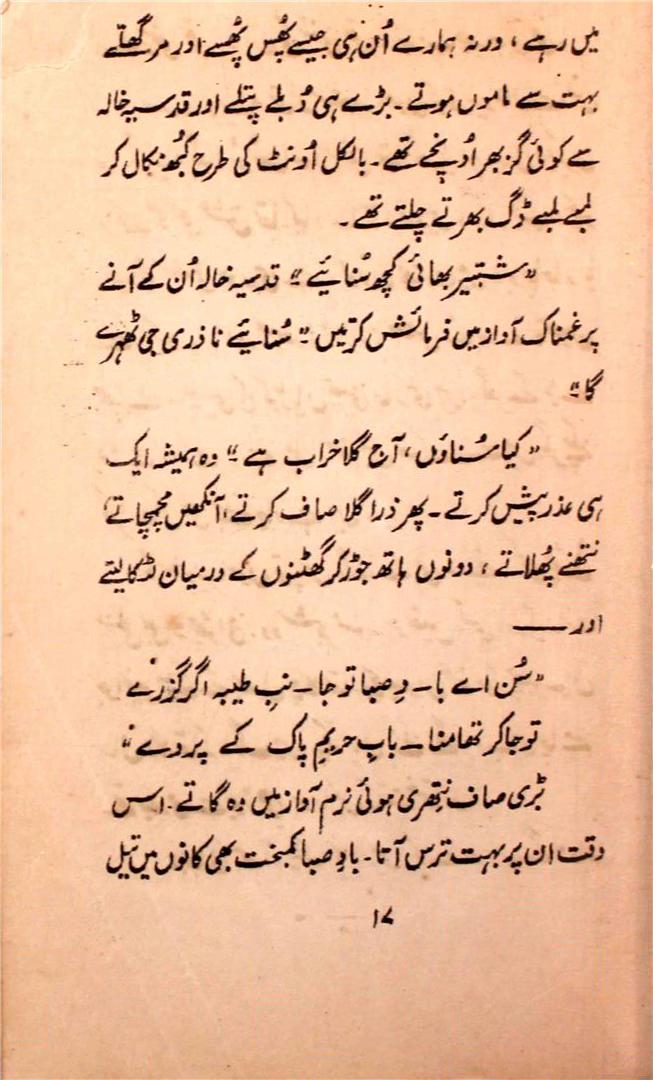 میں رہے، ورنہ ہمارے اُن ہی جیسے پھُس پھُسے اور مرگھلّے
بہت سے ماموں ہوتے۔ بڑے ہی دُبلے پتلے اور قدسیہ خالہ
سے کوئی گز بھر اونچے تھے۔ بالکل اُونٹ کی طرح کُبھ نکال کر
لمبے لمبے ڈگ بھرتے چلتے تھے۔
“شبّیر بھائی کچھ سُنائیے” قدسیہ خالہ اُن کے آنے
پر غمناک آواز میں فرمائش کرتیں “سُنائیے نا ذری جی ٹھہرے
گا”
“کیا سُناؤں، آج گلا خراب ہے” وہ ہمیشہ ایک
ہی عذر پیش کرتے۔ پھر ذرا گلا صاف کرتے، آنکھیں مچمچاتے،
نتھنے پھُلاتے، دونوں ہاتھ جوڑ کر گھٹنوں کے درمیان لٹکا لیتے
اور ——
“سُن اے با۔ دِ صبا تو جا۔ نبِ طیبہ اگر گزرے
تو جا کر تھامنا۔ بابِ حریمِ پاک کے پردے”
بڑی صاف نِتھری ہوئی نرم آواز میں وہ گاتے۔ اس
وقت ان پر بہت ترس آتا۔ بادِ صبا کمبخت بھی کانوں میں تیل
۱۷